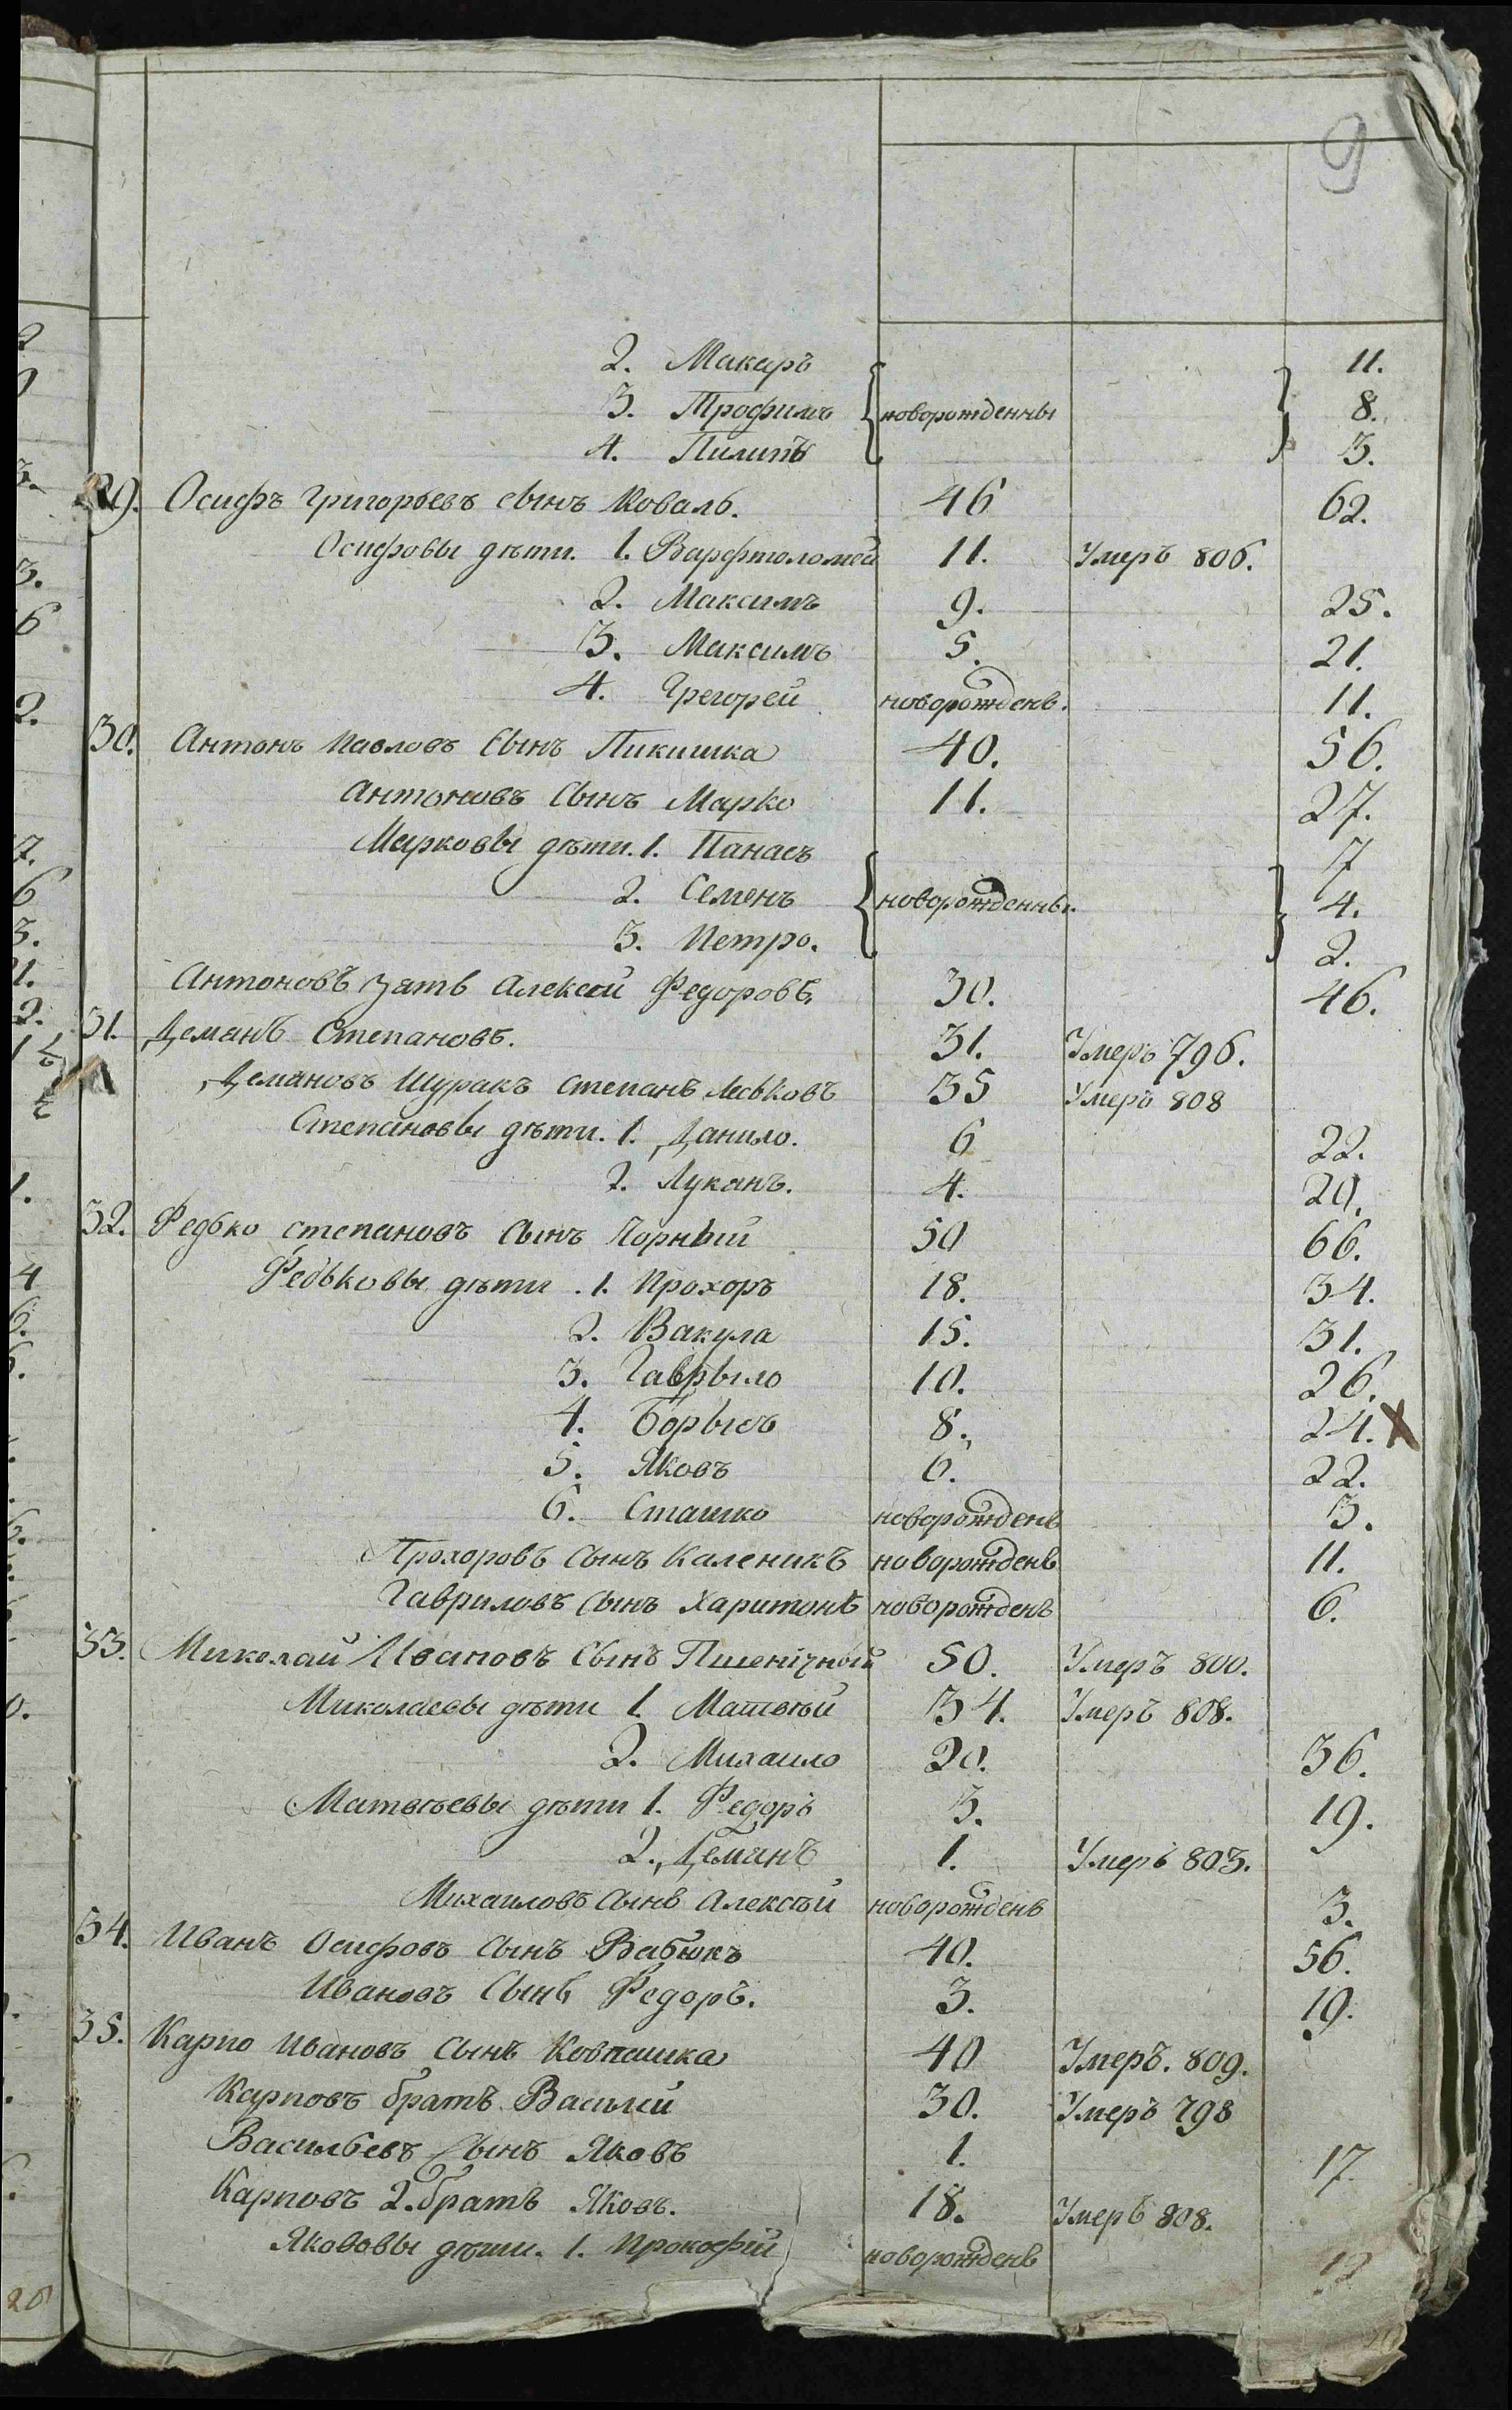 9
2. Макаръ 11.
3. Трофимъ новорожденны 8.
4. Пилипъ 3.
29. Осифъ Григорьевъ сынъ Коваль. 46 62.
Осифовы дѣти. 1. Варфтоломей 11. Умеръ 806.
2. Максимъ 9. 25.
3. Максимъ 5. 21.
4. Грегорей новорожденъ. 11.
30. Антонъ Павловъ Сынъ Пикишка 40. 56.
Антоновъ Сынъ Марко 11. 27.
Марковы дѣти. 1. Панасъ 7
2. Семенъ новорожденны. 4.
3. Петро. 2.
Антоновъ зять Алексей Федоровъ 30. 46.
31. Демянъ Степановъ. 31. Умеръ 796.
Демяновъ Шуракъ Степанъ Леьковъ 35 Умеръ 808
Степановы дѣти. 1. Данило. 6 22.
2. Луканъ. 4. 20.
32. Федько Степановъ Сынъ 50 66.
Федьковы дѣти. 1. Прохоръ 18. 34.
2. Вакула 15. 31.
3. Гаврыло 10. 26.
4. Борысъ 8. 24. X
5. Яковъ 6. 22.
6. Сташко новорожденъ 3.
Прохоровъ Сынъ Каленикъ новорожденъ 11.
Гавриловъ Сынъ Харитонъ новорожденъ 6.
33. Миколай Ивановъ Сынъ Пшенічный 50. Умеръ 800.
Миколаевы дѣти 1. Матвѣй 34. Умеръ 808.
2. Михаило 20. 36.
Матвѣевы дѣти 1. Федоръ 3. 19.
2. Демянъ 1. Умеръ 803.
Михаиловъ Сынъ Алексѣй новорожденъ 3.
34. Иванъ Осифовъ Сынъ Рабюкъ 40. 56.
Ивановъ Сынъ Федоръ. 3. 19.
35. Карпо Ивановъ Сынъ Ковпашка 40 Умеръ. 809.
Карповъ братъ Василий 30. Умеръ 798
Васильевъ Сынъ Яковъ 1. 17
Карповъ 2. братъ Яковъ. 18. Умеръ 808.
Якововы дѣти. 1. Прокофий новорожденъ 12